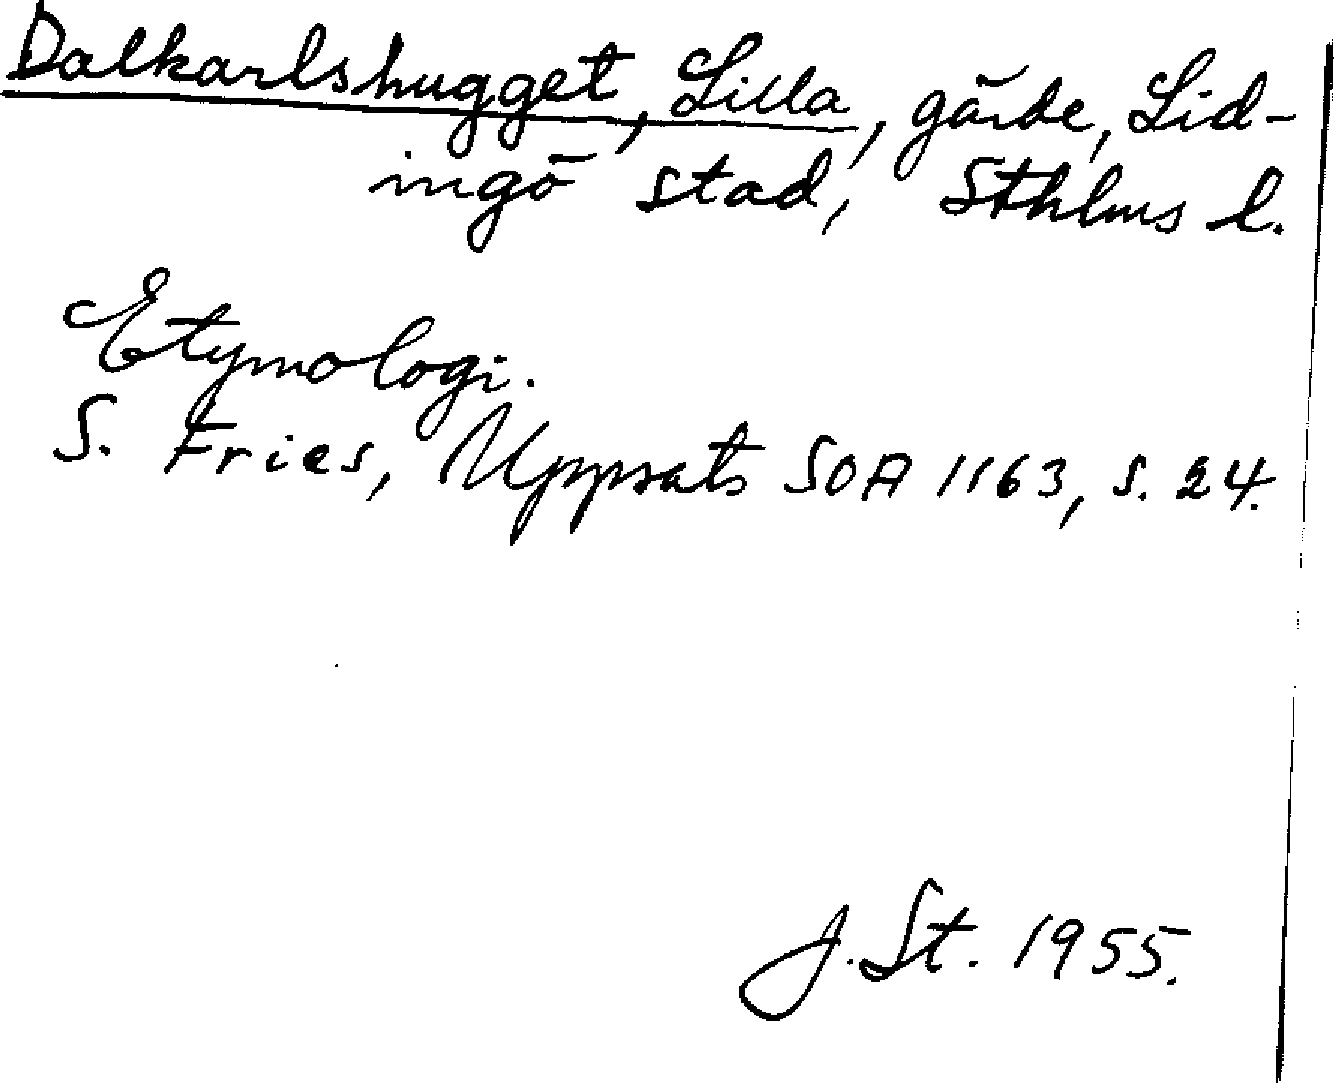 Dalkarlshugget, Lilla, gärde, Lid-
ingö stad, Sthlms l.
Etymologi.
S. Fries, Uppsats SOA 1163, s. 24.
J. St. 1955.